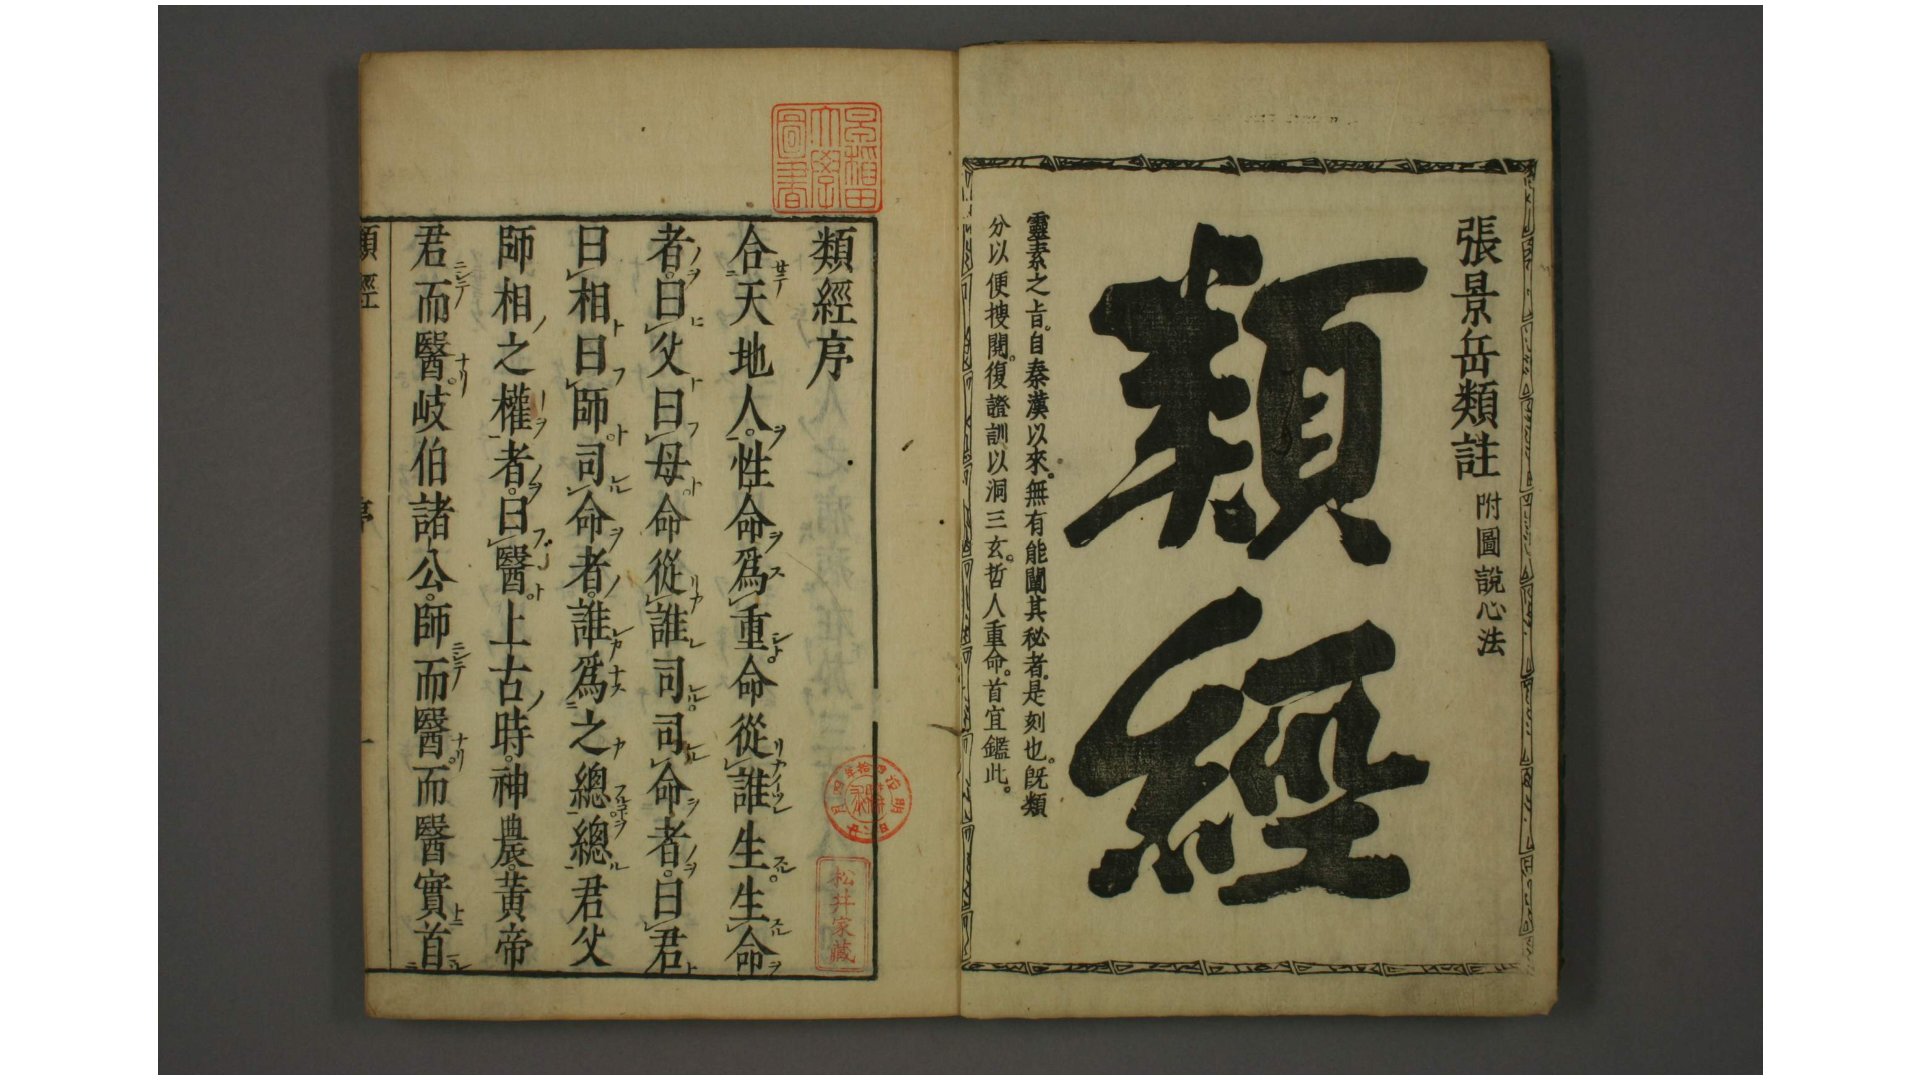 張景岳類註 附圖說心法
類經
靈素之旨。自秦漢以來。無有能闡其秘者。是刻也。既類
分以便搜閱。復證訓以洞三玄。哲人重命。首宜鑑此。
早稻田大學圖書
類經序
合天地人。性命爲重命從誰生生命
者。曰父曰母命從誰司司命者。曰君
曰相曰師。司命者。誰爲之總總君父
師相之權者。曰醫。上古時。神農。黃帝
君而醫。岐伯諸公。師而醫。而醫實首
類經
序
一
明治四拾四年
松井家藏